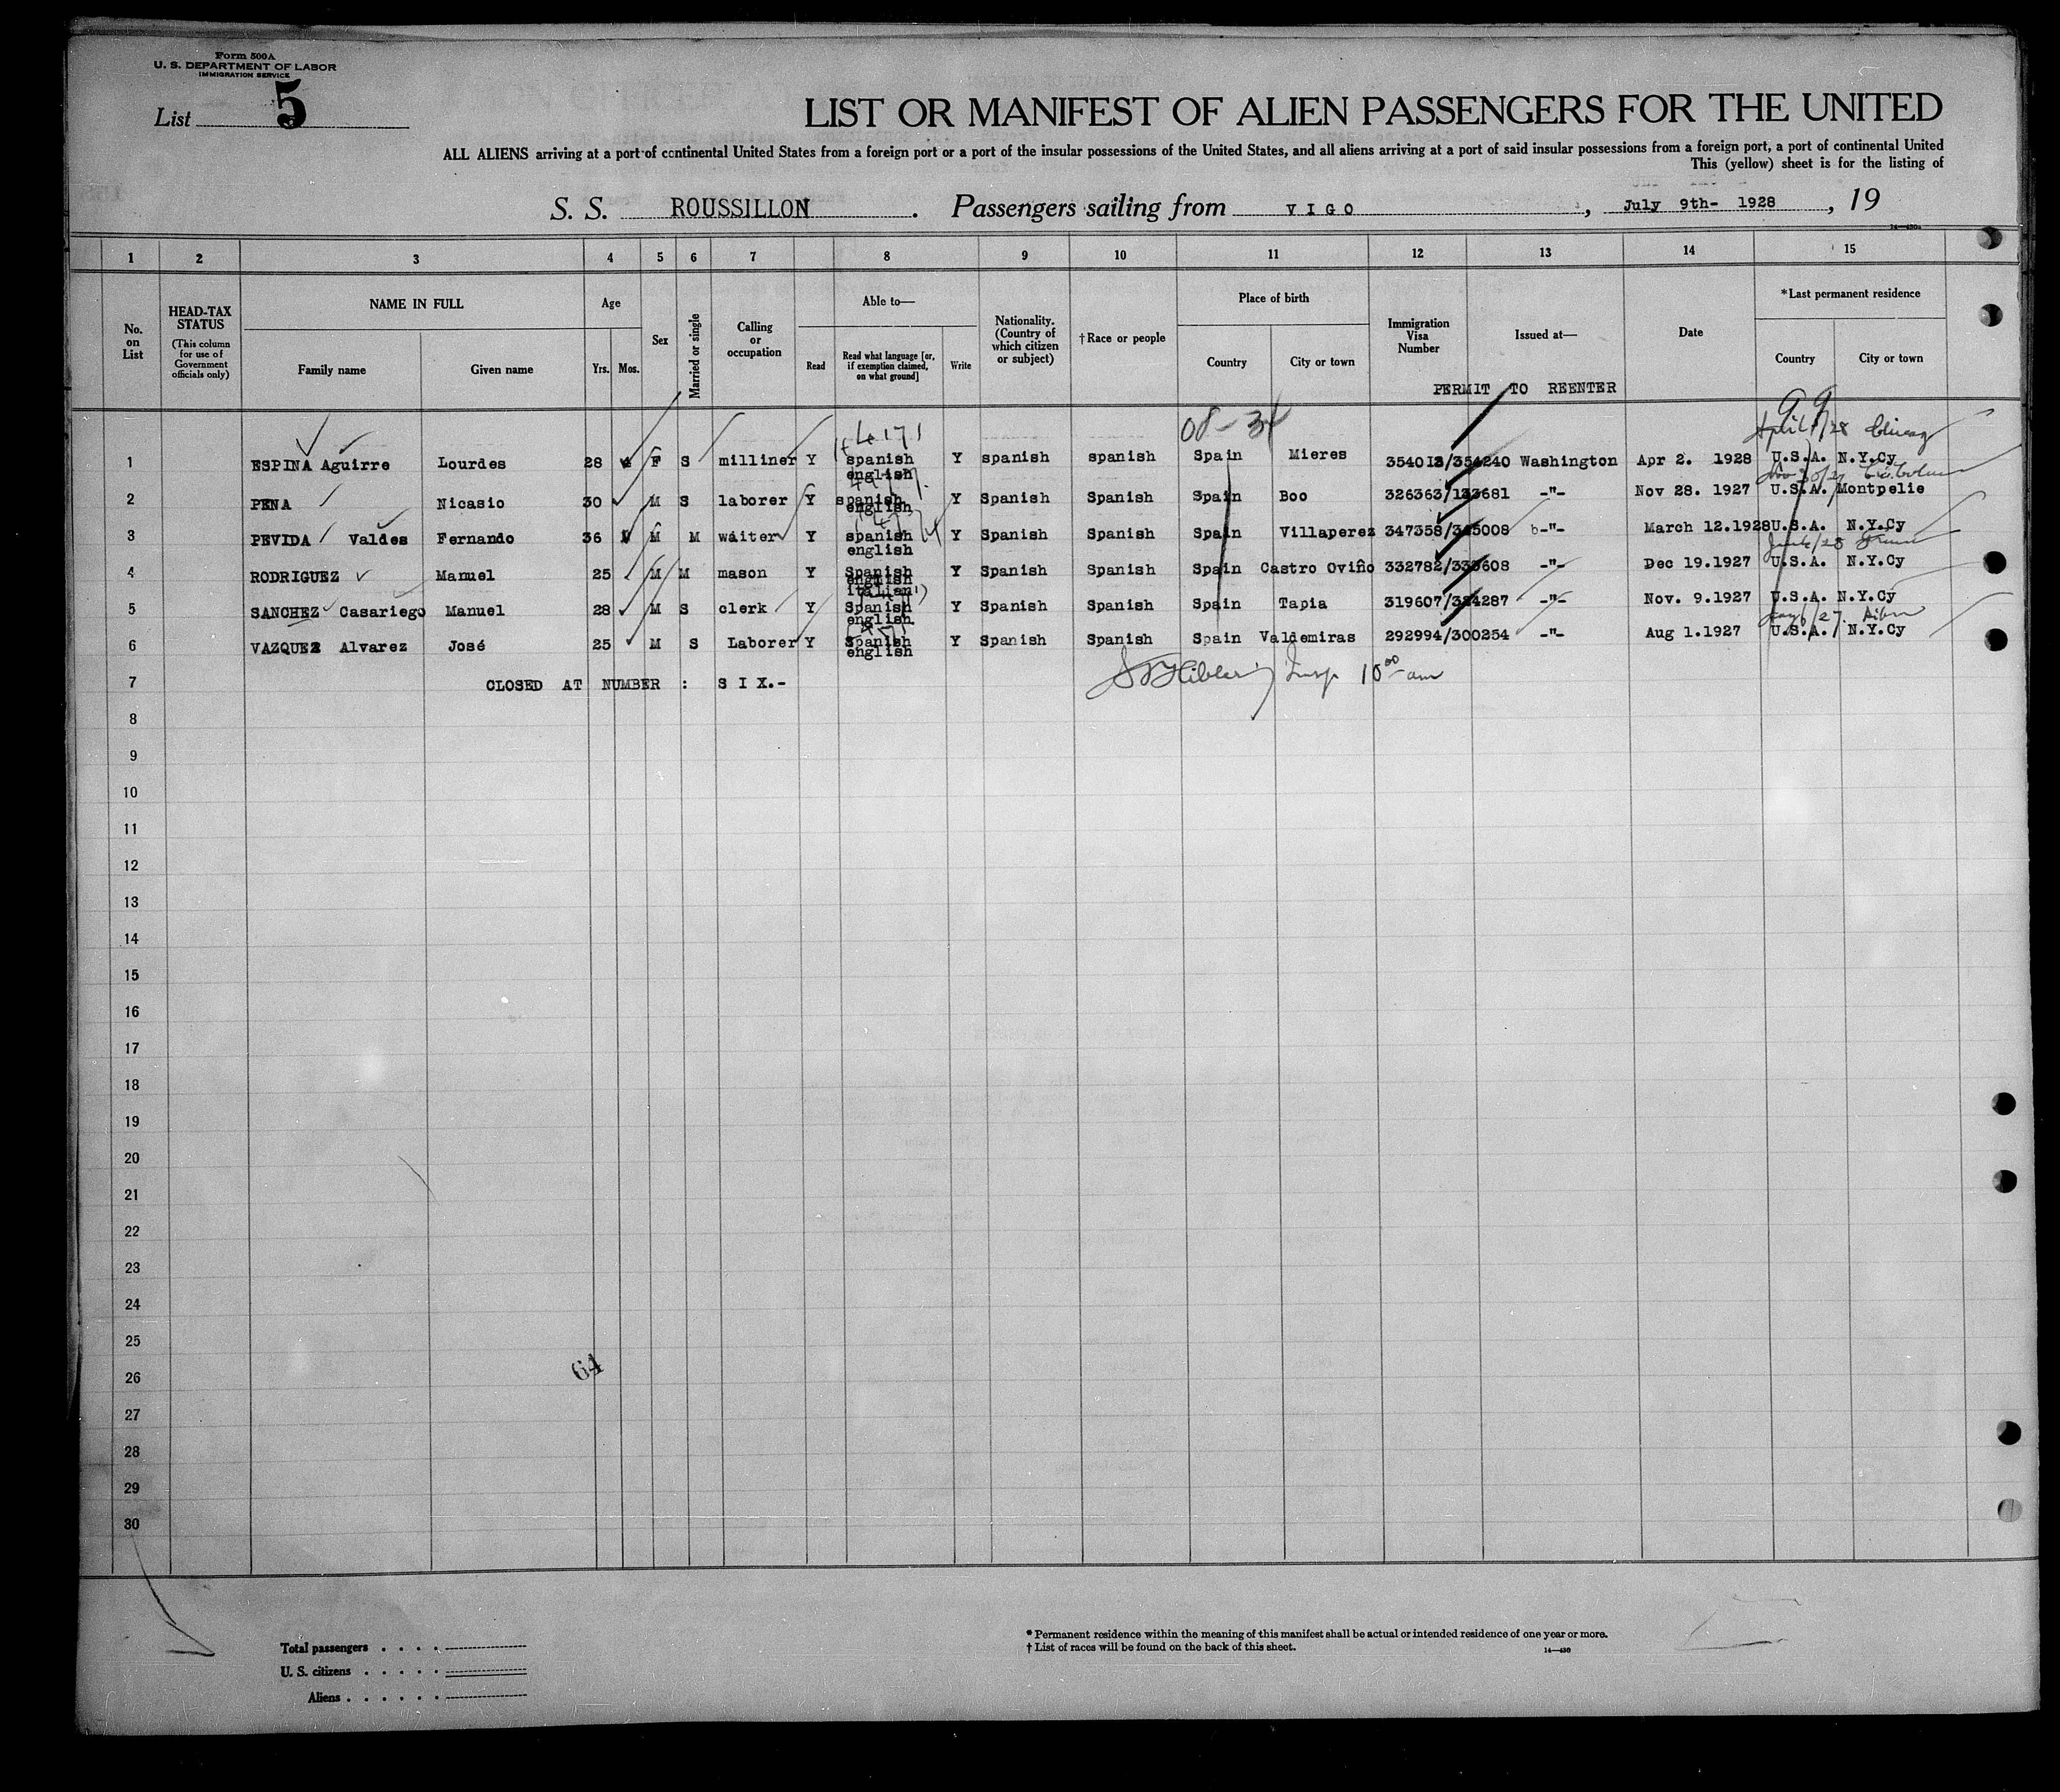 Form 500A
U. S. DEPARTMENT OF LABOR
IMMIGRATION SERVICE
List 5
LIST OR MANIFEST OF ALIEN PASSENGERS FOR THE UNITED
ALL ALIENS arriving at a port of continental United States from a foreign port or a port of the insular possessions of the United States, and all aliens arriving at a port of said insular possessions from a foreign port, a port of continental United
This (yellow) sheet is for the listing of
S. S. ROUSSILLON . Passengers sailing from VIGO , July 9th- 1928 , 19
14—430a
1 2 3 4 5 6 7 8 9 10 11 12 13 14 15
No. on List
HEAD-TAX STATUS (This column for use of Government officials only)
NAME IN FULL Family name Given name
Age Yrs. Mos.
Sex
Married or single
Calling or occupation
Able to— Read Read what language [or, if exemption claimed, on what ground] Write
Nationality. (Country of which citizen or subject)
†Race or people
Place of birth Country City or town
Immigration Visa Number
Issued at—
Date
*Last permanent residence Country City or town
PERMIT TO REENTER
08-34
1 ESPINA Aguirre Lourdes 28 F S milliner Y spanish english Y spanish spanish Spain Mieres /354240 Washington Apr 2. 1928 U.S.A. N.Y.Cy
2 PENA Nicasio 30 M S laborer Y spanish english Y Spanish Spanish Spain Boo 326363/133681 -"- Nov 28. 1927 U.S.A. Montpelie
3 PEVIDA Valdes Fernando 36 M M waiter Y spanish english Y Spanish Spanish Spain Villaperez 347358/345008 -"- March 12.1928 U.S.A. N.Y.Cy
4 RODRIGUEZ Manuel 25 M M mason Y Spanish english italian Y Spanish Spanish Spain Castro Oviño 332782/333608 -"- Dec 19.1927 U.S.A. N.Y.Cy
5 SANCHEZ Casariego Manuel 28 M S clerk Y Spanish english Y Spanish Spanish Spain Tapia 319607/324287 -"- Nov. 9.1927 U.S.A. N.Y.Cy
6 VAZQUEZ Alvarez José 25 M S Laborer Y Spanish english Y Spanish Spanish Spain Valdemiras 292994/300254 -"- Aug 1.1927 U.S.A. N.Y.Cy
7 CLOSED AT NUMBER : SIX.- Insp 10 00 am
8
9
10
11
12
13
14
15
16
17
18
19
20
21
22
23
24
25
26
64
27
28
29
30
Total passengers . . . .
U. S. citizens . . . . .
Aliens . . . . . .
* Permanent residence within the meaning of this manifest shall be actual or intended residence of one year or more.
† List of races will be found on the back of this sheet.
14—430